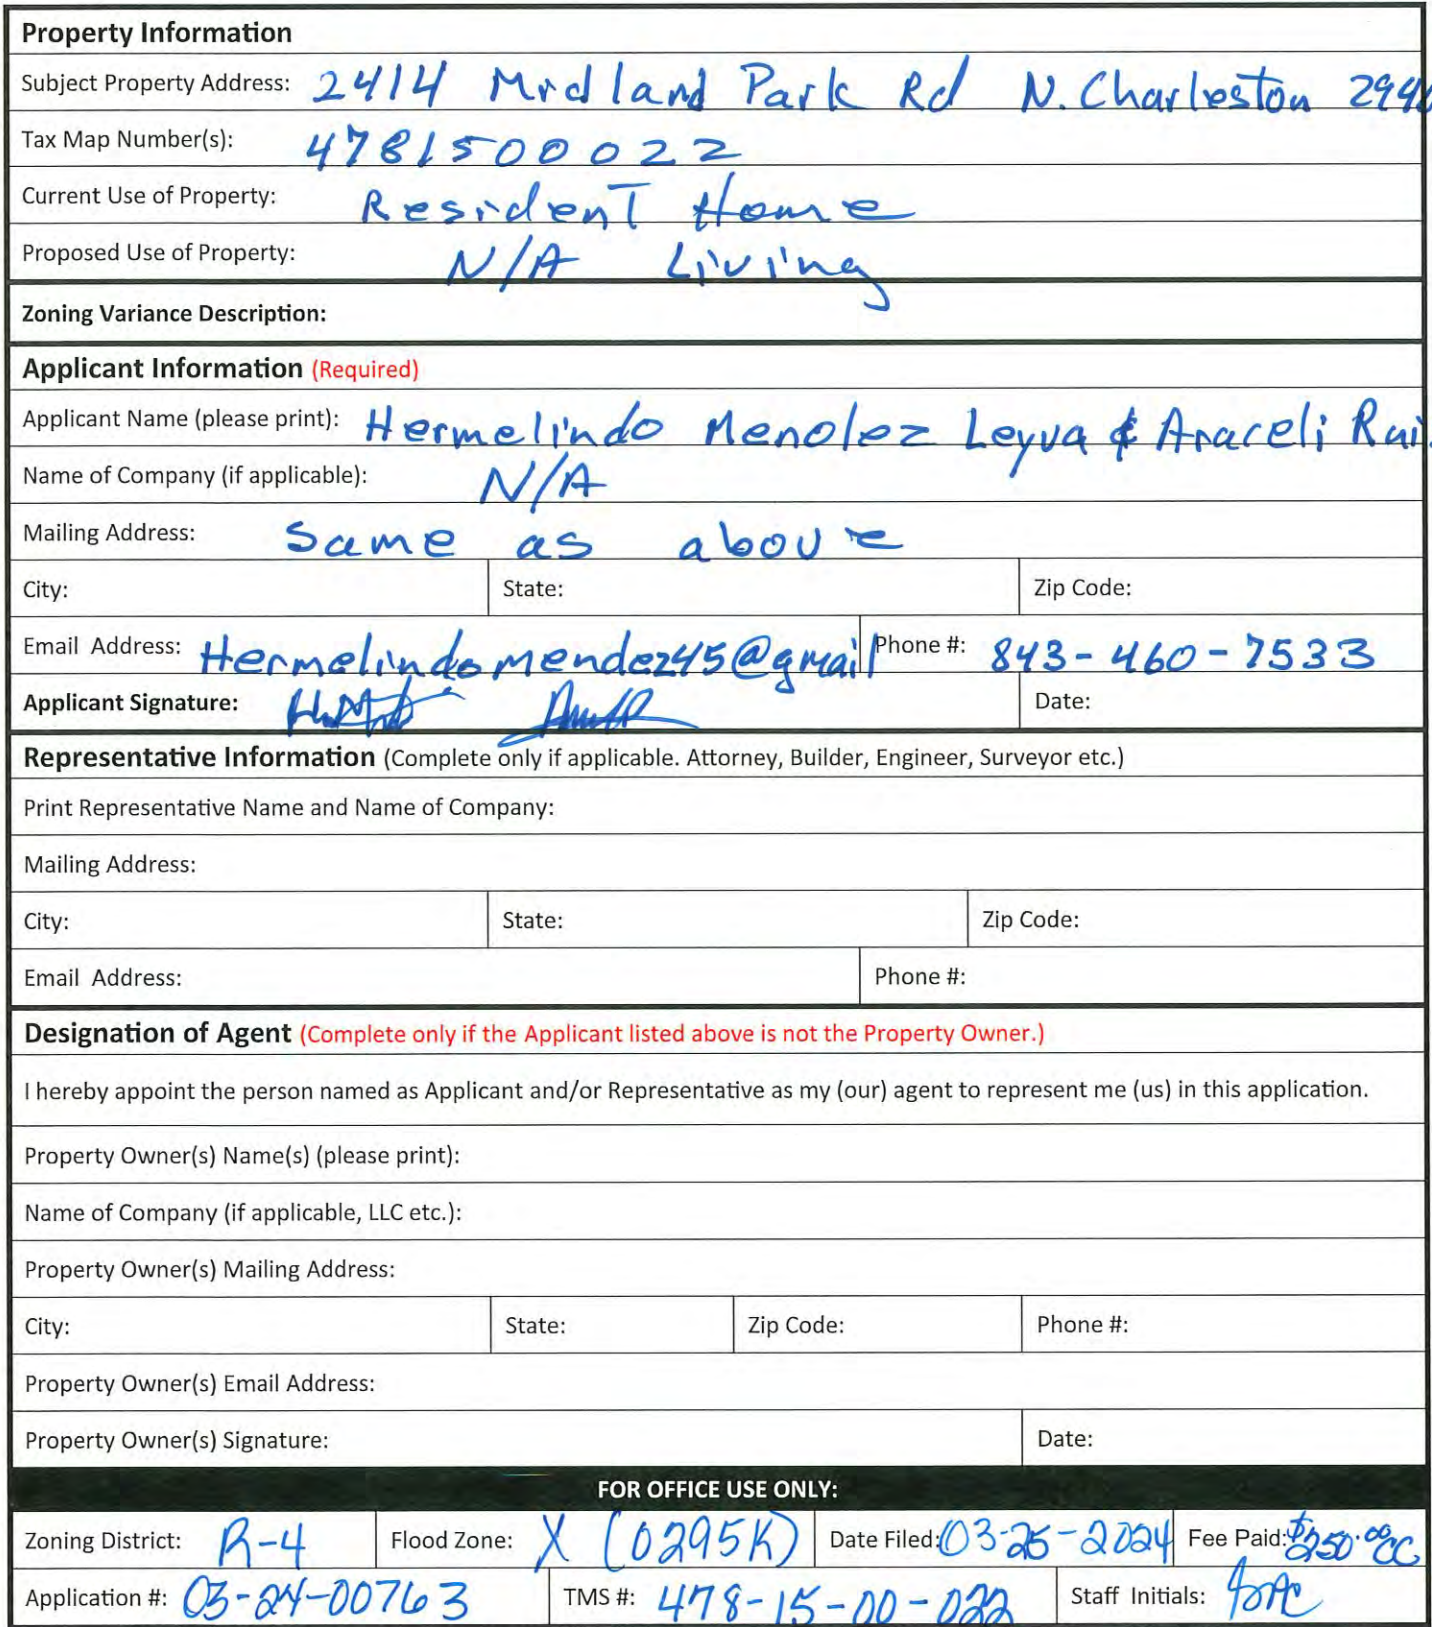 Property Information
Subject Property Address: 2414 Midland Park Rd N. Charleston 2940
Tax Map Number(s): 4781500022
Current Use of Property: Resident Home
Proposed Use of Property: N/A Living
Zoning Variance Description:
Applicant Information (Required)
Applicant Name (please print): Hermelindo Mendez Leyva & Araceli Rui
Name of Company (if applicable): N/A
Mailing Address: Same as above
City: State: Zip Code:
Email Address: Hermelindomendez45@gmail Phone #: 843-460-7533
Applicant Signature: Date:
Representative Information (Complete only if applicable. Attorney, Builder, Engineer, Surveyor etc.)
Print Representative Name and Name of Company:
Mailing Address:
City: State: Zip Code:
Email Address: Phone #:
Designation of Agent (Complete only if the Applicant listed above is not the Property Owner.)
I hereby appoint the person named as Applicant and/or Representative as my (our) agent to represent me (us) in this application.
Property Owner(s) Name(s) (please print):
Name of Company (if applicable, LLC etc.):
Property Owner(s) Mailing Address:
City: State: Zip Code: Phone #:
Property Owner(s) Email Address:
Property Owner(s) Signature: Date:
FOR OFFICE USE ONLY:
Zoning District: R-4 Flood Zone: X (0295K) Date Filed: 03-25-2024 Fee Paid: $250.00 CC
Application #: 03-24-00763 TMS #: 478-15-00-022 Staff Initials: